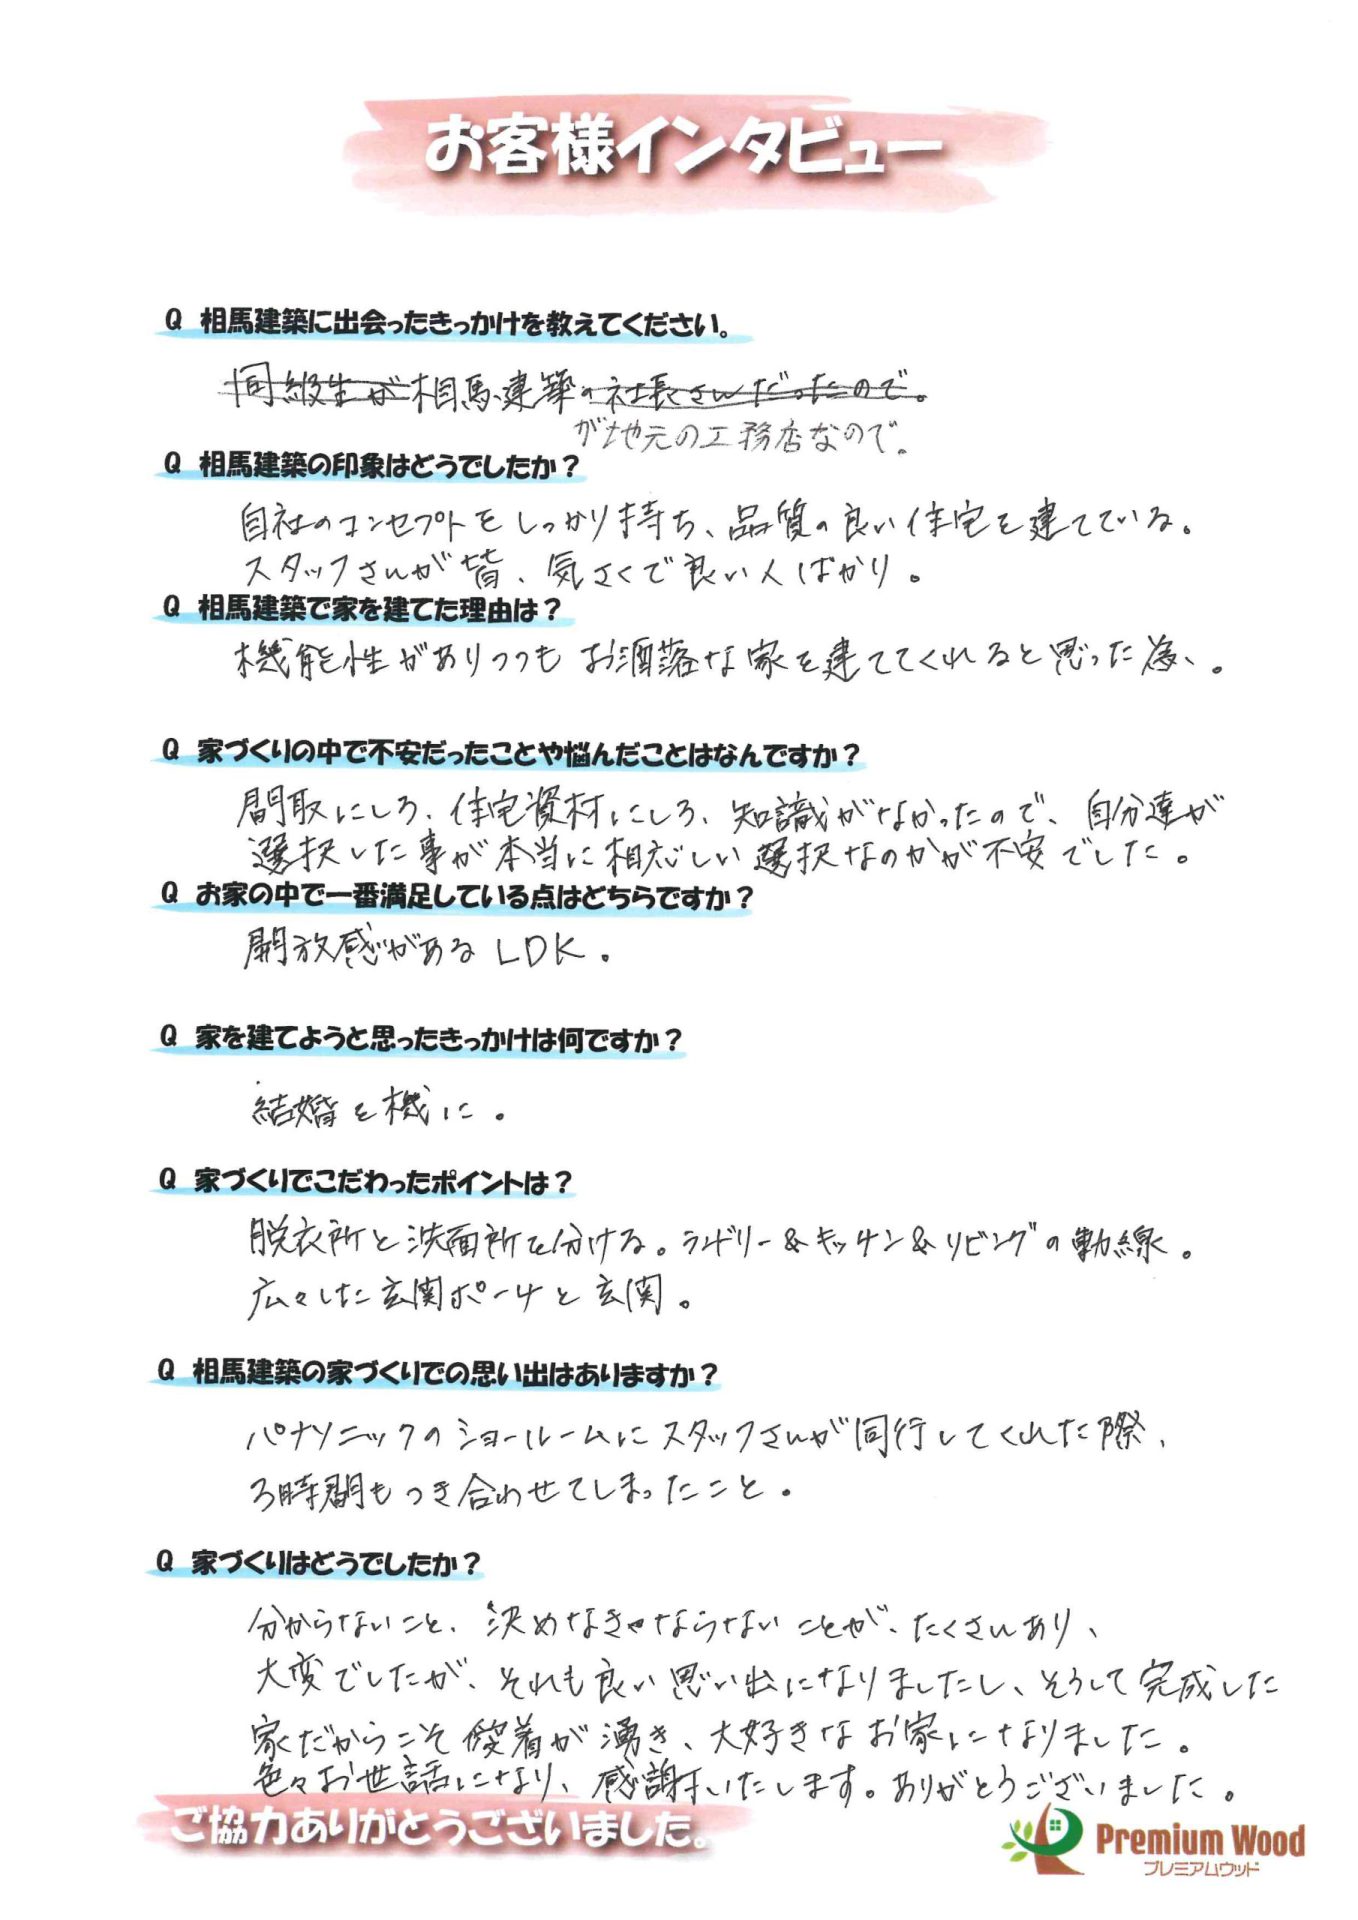 お客様インタビュー
Q 相馬建築に出会ったきっかけを教えてください。
同級生が相馬建築の社長さんだったので。
が地元の工務店なので。
Q 相馬建築の印象はどうでしたか？
自社のコンセプトをしっかり持ち、品質の良い住宅を建てている。
スタッフさんが皆、気さくで良い人ばかり。
Q 相馬建築で家を建てた理由は？
機能性がありつつもお洒落な家を建ててくれると思った為、。
Q 家づくりの中で不安だったことや悩んだことはなんですか？
間取にしろ、住宅資材にしろ、知識がなかったので、自分達が
選択した事が本当に相応しい選択なのかが不安でした。
Q お家の中で一番満足している点はどちらですか？
開放感があるLDK。
Q 家を建てようと思ったきっかけは何ですか？
結婚を機に。
Q 家づくりでこだわったポイントは？
脱衣所と洗面所を分ける。ランドリー&キッチン&リビングの動線。
広々した玄関ポーチと玄関。
Q 相馬建築の家づくりでの思い出はありますか？
パナソニックのショールームにスタッフさんが同行してくれた際、
3時間もつき合わせてしまったこと。
Q 家づくりはどうでしたか？
分からないこと、決めなきゃならないことが、たくさんあり、
大変でしたが、それも良い思い出になりましたし、そうして完成した
家だからこそ愛着が湧き、大好きなお家になりました。
色々お世話になり、感謝いたします。ありがとうございました。
ご協力ありがとうございました。
Premium Wood
プレミアムウッド